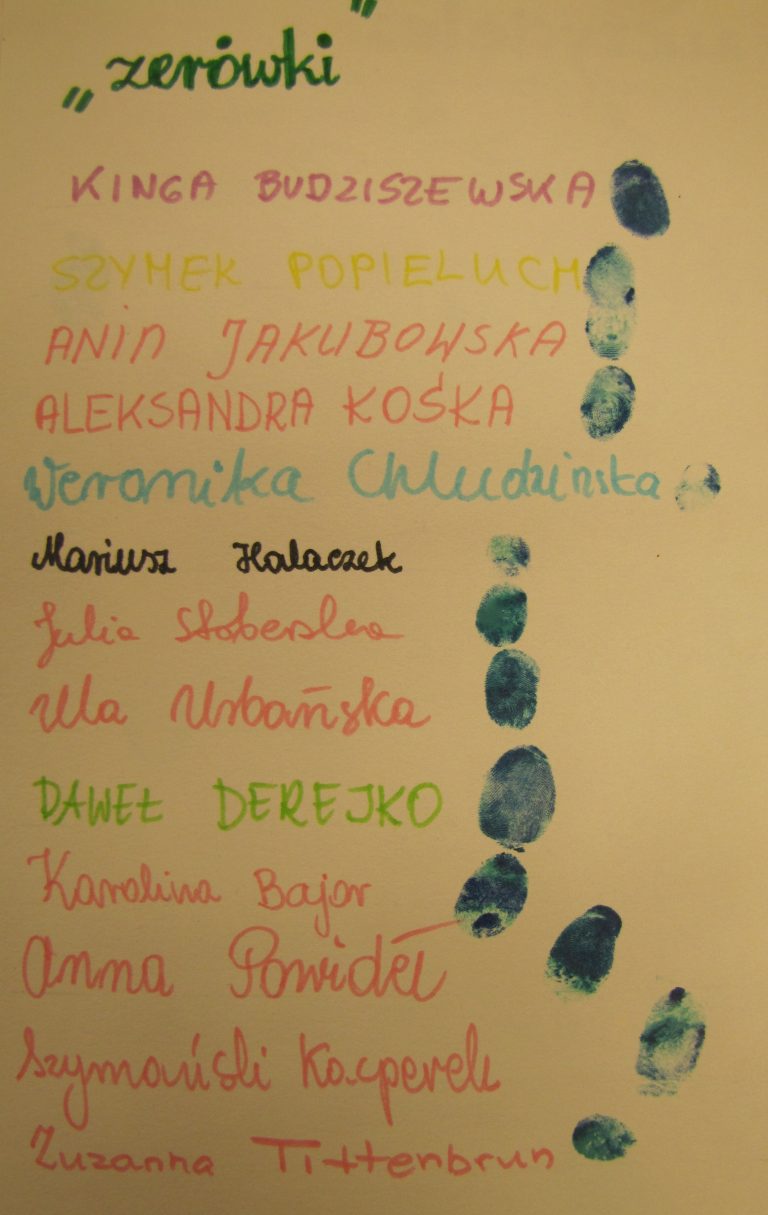 „zerówki”
KINGA BUDZISZEWSKA
SZYMEK POPIELUCH
ANIA JAKUBOWSKA
ALEKSANDRA KOŚKA
Weronika Chludzińska
Mariusz Halaczek
Julia Stoberska
Ula Urbańska
DAWEŁ DEREJKO
Karolina Bajor
Anna Powideł
Szymański Kacperek
Zuzanna Tittenbrun